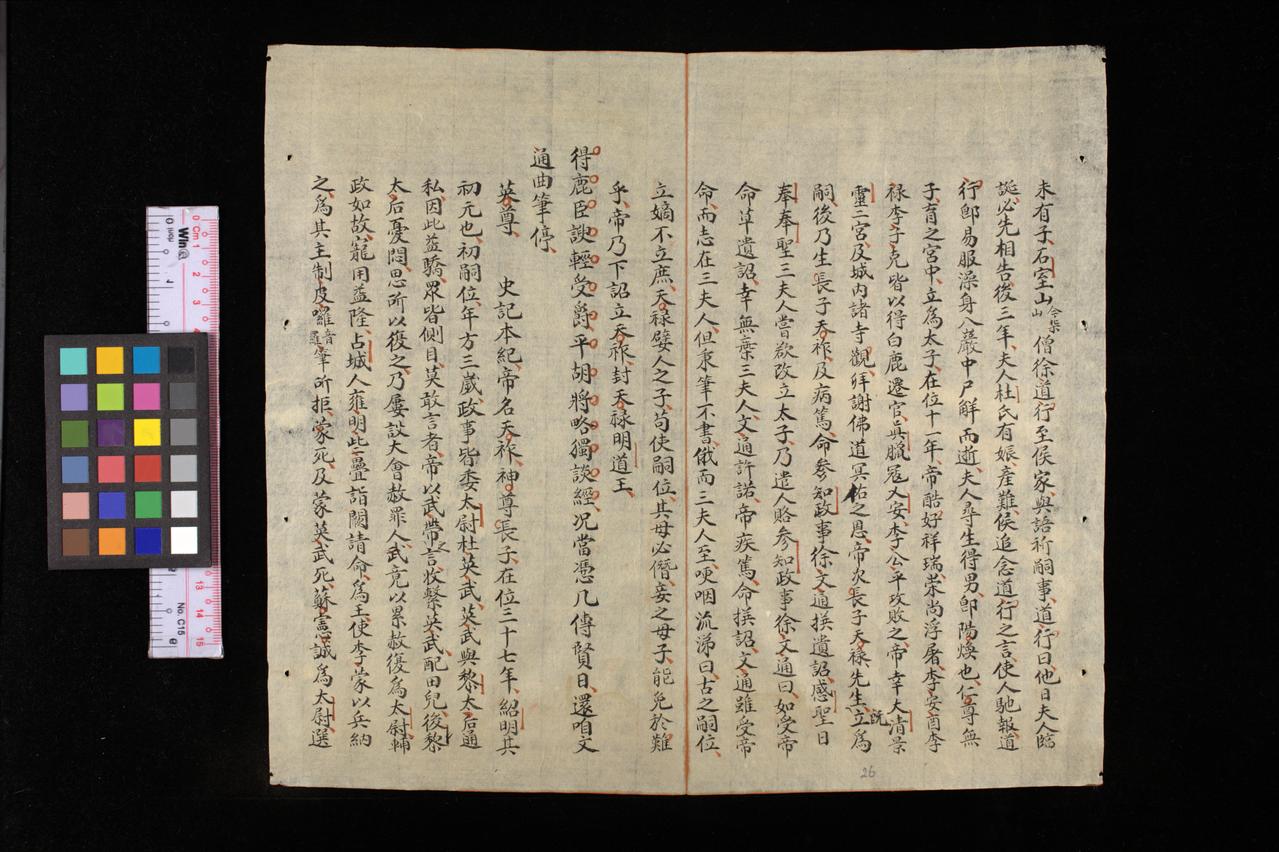 未有子、石室山今柴山僧徐道行至侯家、與語祈嗣事、道行曰、他日夫人臨
誕、必先相告、後三年、夫人杜氏有娠、產難、侯追念道行之言、使人馳報、道
行即易服澡身、入巖中尸解而逝、夫人尋生得男、即陽煥也、仁尊無
子、育之宮中、立為太子、在位十一年、帝酷好祥瑞、崇尚浮屠、李安酉李
祿李子克皆以得白鹿遷官、真臘寇乂安、李公平攻敗之、帝幸大清景
靈二宮、及城內諸寺觀、拜謝佛道冥佑之恩、帝次長子天祿先生、既立為
嗣、後乃生長子天祚、及病篤、命參知政事徐文通撰遺詔、感聖日
奉奉聖三夫人嘗欲改立太子、乃遣人賂參知政事徐文通曰、如受帝
命草遺詔、幸無棄三夫人、文通許諾、帝疾篤、命撰詔、文通雖受帝
命、而志在三夫人、但秉筆不書、俄而三夫人至、哽咽流涕曰、古之嗣位、
立嫡不立庶、天祿嬖人之子、苟使嗣位、其母必僭、妾之母子、能免於難
乎、帝乃下詔立天祚、封天祿明道王、
得鹿臣諛輕受爵平胡將略獨談經、況當憑几傳賢日、還咱文
通曲筆停、
英尊、 史記本紀、帝名天祚、神尊長子、在位三十七年、紹明其
初元也、初嗣位、年方三歲、政事皆委太尉杜英武、英武與黎太后通
私、因此益驕、眾皆側目、莫敢言者、帝以武帶之言、收繫英武、配田兒、後黎
太后憂悶、思所以復之、乃屢設大會赦罪人、武竟以累赦復為太尉輔
政如故、寵用益隆、占城人雍明些疊詣闕請命為王、使李蒙以兵納
之、為其主制皮囉筆所拒、蒙死、及蒙英武死、蘇憲誠為太尉、選
26